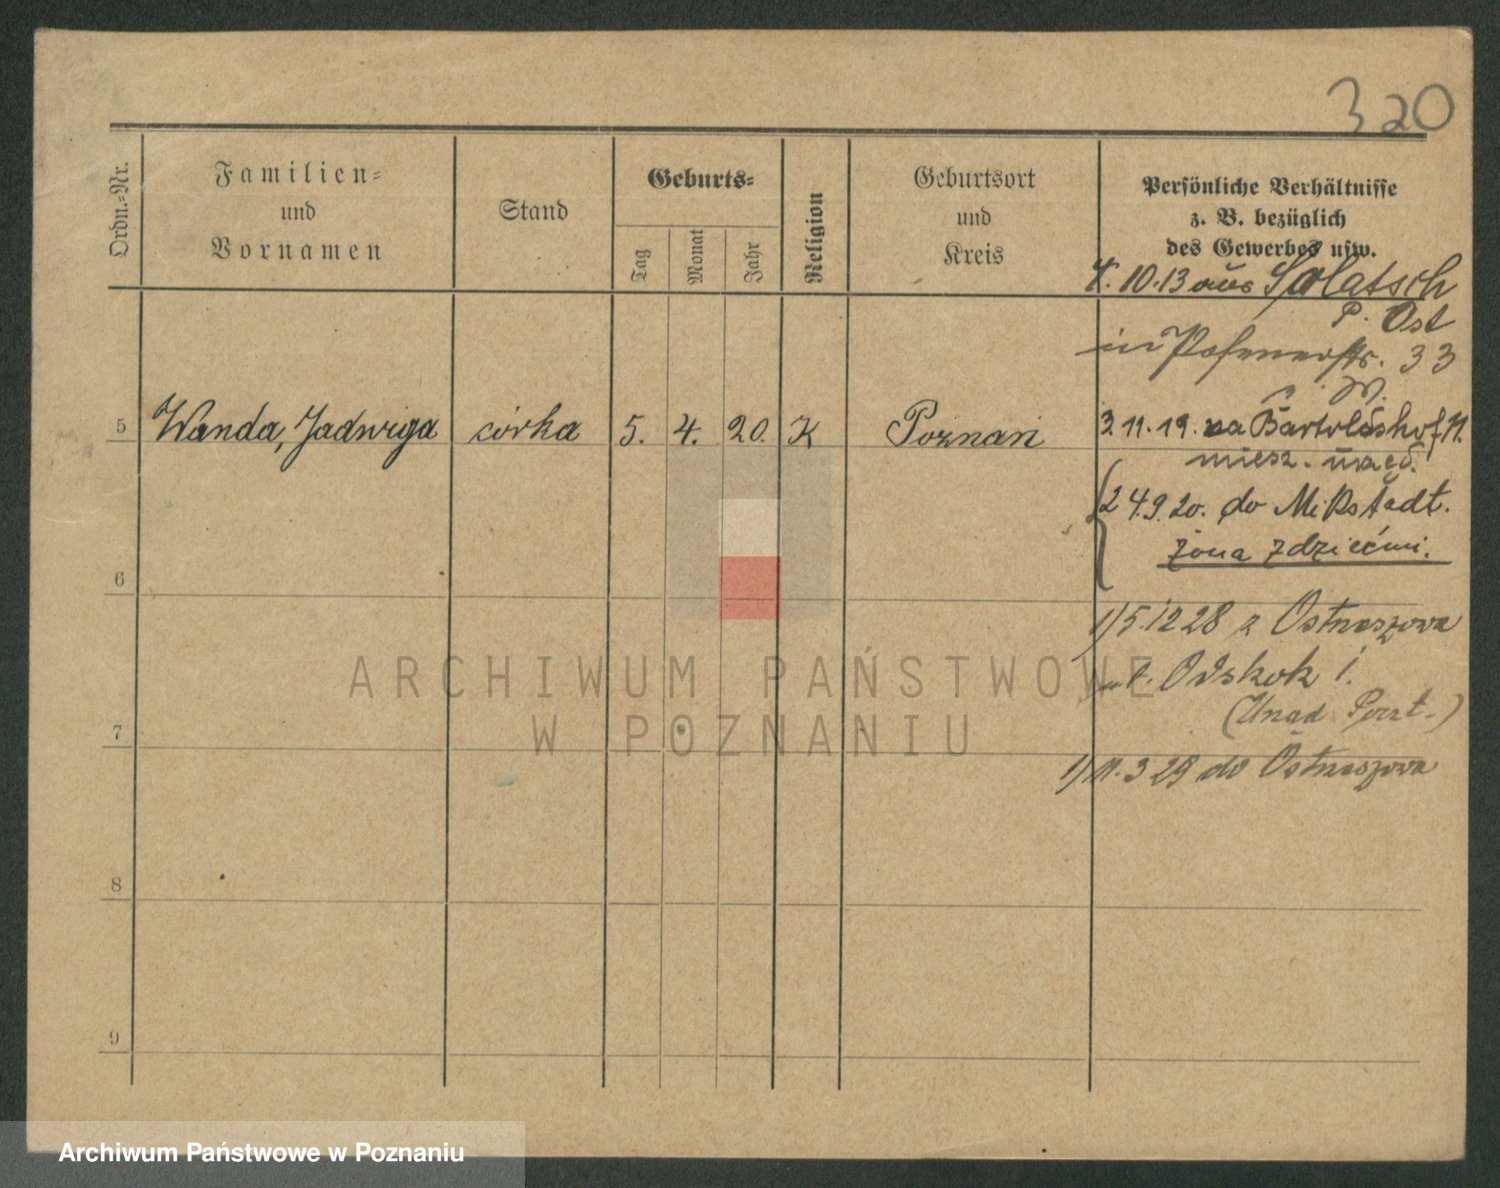 320
Ordn.-Nr.
Familien-
und
Vornamen
Stand
Geburts-
Tag
Monat
Jahr
Religion
Geburtsort
und
Kreis
Persönliche Verhältnisse
z. B. bezüglich
des Gewerbes usw.
10.13 aus Solatsch
P. Ost
in Posenerstr. 33
5 Wanda, Jadwiga córka 5. 4. 20. K Poznań
3.11.19. na Bartoldshof
miesz. urzęd.
24.9.20. do Mikstadt.
żona z dziećmi.
6
1) 5.12 28 z Ostrzeszowa
Odskok 1.
(Urząd Poczt.)
7
1) 11.3 29 do Ostrzeszowa
8
9
ARCHIWUM PAŃSTWOWE
W POZNANIU
Archiwum Państwowe w Poznaniu